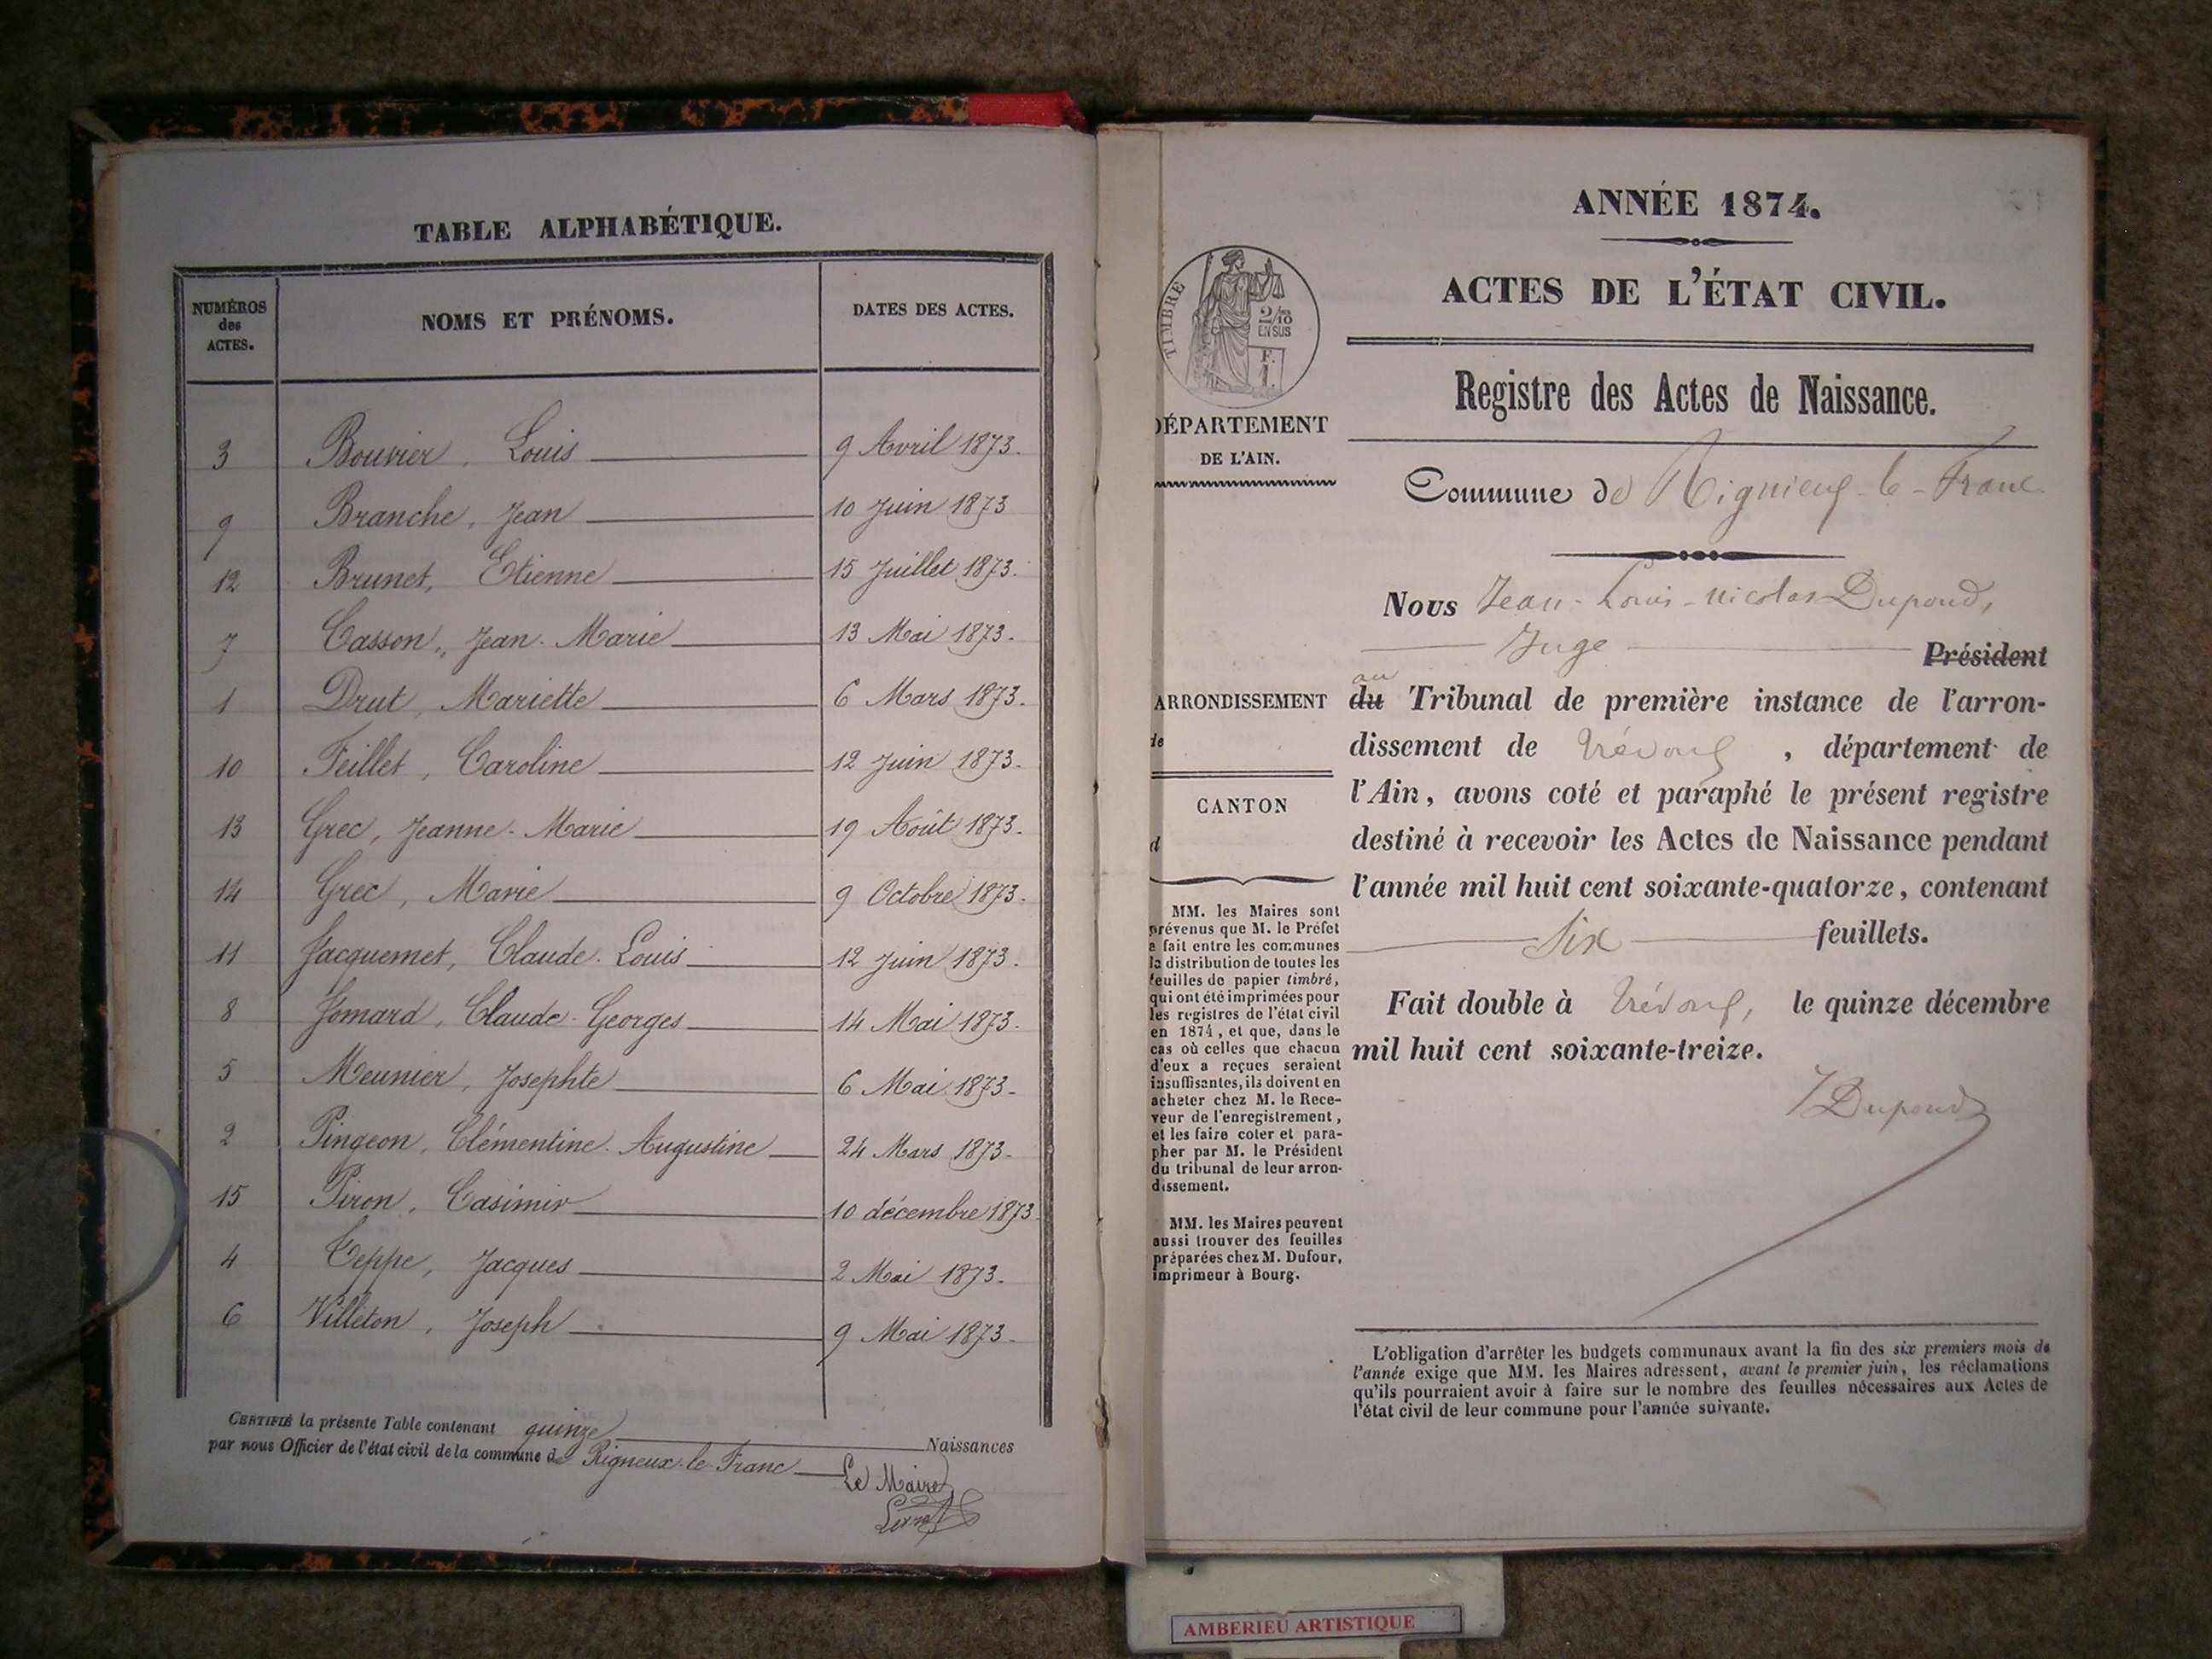 TABLE ALPHABÉTIQUE.
NUMÉROS des ACTES. NOMS ET PRÉNOMS. DATES DES ACTES.
3 Bouvier, Louis 9 Avril 1873.
9 Branche, Jean 10 Juin 1873
12 Brunet, Etienne 15 Juillet 1873.
7 Casson, Jean-Marie 13 Mai 1873.
1 Drut, Mariette 6 Mars 1873.
10 Feillet, Caroline 12 Juin 1873.
13 Grec, Jeanne-Marie 19 Août 1873.
14 Grec, Marie 9 Octobre 1873.
11 Jacquemet, Claude-Louis 12 Juin 1873.
8 Jomard, Claude-Georges 14 Mai 1873.
5 Meunier, Josephte 6 Mai 1873.
2 Pingeon, Clémentine-Augustine 24 Mars 1873.
15 Piron, Casimir 10 décembre 1873
4 Teppe, Jacques 2 Mai 1873.
6 Villeton, Joseph 9 Mai 1873.
CERTIFIÉ la présente Table contenant quinze Naissances
par nous Officier de l'état civil de la commune de Rigneux-le-Franc
Le Maire
TIMBRE
2/10
EN SUS
F. I.
DÉPARTEMENT
DE L'AIN.
ARRONDISSEMENT
de
CANTON
d
MM. les Maires sont
prévenus que M. le Préfet
a fait entre les communes
la distribution de toutes les
feuilles de papier timbré,
qui ont été imprimées pour
les registres de l'état civil
en 1874, et que, dans le
cas où celles que chacun
d'eux a reçues seraient
insuffisantes, ils doivent en
acheter chez M. le Rece-
veur de l'enregistrement,
et les faire coter et para-
pher par M. le Président
du tribunal de leur arron-
dissement.
MM. les Maires peuvent
aussi trouver des feuilles
préparées chez M. Dufour,
imprimeur à Bourg.
ANNÉE 1874.
ACTES DE L'ÉTAT CIVIL.
Registre des Actes de Naissance.
Commune de Rignieux-le-Franc
Nous Jean-Louis-Nicolas Dupond,
Juge Président
au
du Tribunal de première instance de l'arron-
dissement de Trévoux, département de
l'Ain, avons coté et paraphé le présent registre
destiné à recevoir les Actes de Naissance pendant
l'année mil huit cent soixante-quatorze, contenant
Six feuillets.
Fait double à Trévoux, le quinze décembre
mil huit cent soixante-treize.
JDupond
L'obligation d'arrêter les budgets communaux avant la fin des six premiers mois de
l'année exige que MM. les Maires adressent, avant le premier juin, les réclamations
qu'ils pourraient avoir à faire sur le nombre des feuilles nécessaires aux Actes de
l'état civil de leur commune pour l'année suivante.
AMBERIEU ARTISTIQUE